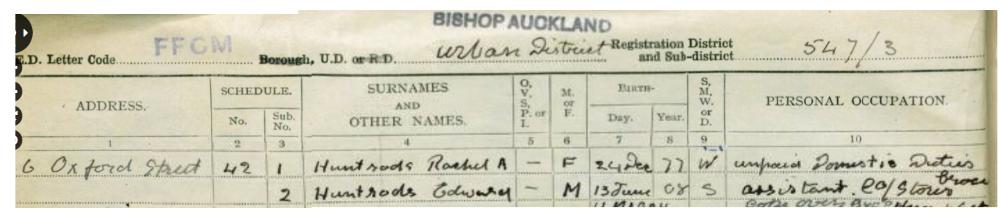 BISHOP AUCKLAND
E.D. Letter Code FFCM Borough, U.D. or R.D. Urban District Registration District and Sub-district 547/3
ADDRESS. SCHEDULE. No. Sub. No. SURNAMES AND OTHER NAMES. O, V, S, P. or I. M. or F. BIRTH- Day. Year. S, M, W, or D. PERSONAL OCCUPATION.
1 2 3 4 5 6 7 8 9 10
6 Oxford Street 42 1 Huntrods Rachel A – F 24 Dec 77 W unpaid Domestic Duties
2 Huntrods Edward – M 13 June 08 S assistant Co/Stores